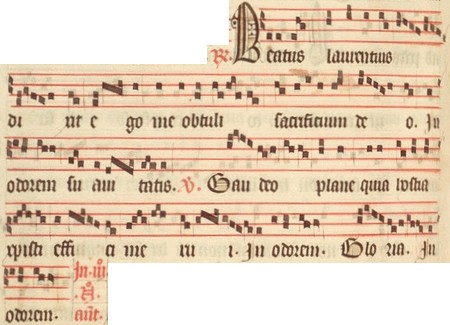 R. Beatus laurentius
di xit e go me obtuli sacrificium de o. In
odorem su aui tatis. V. Gau deo plane quia hostia
xpisti effi ci me rui. In odorem. Glo ria. In
odorem. In iii
ant.